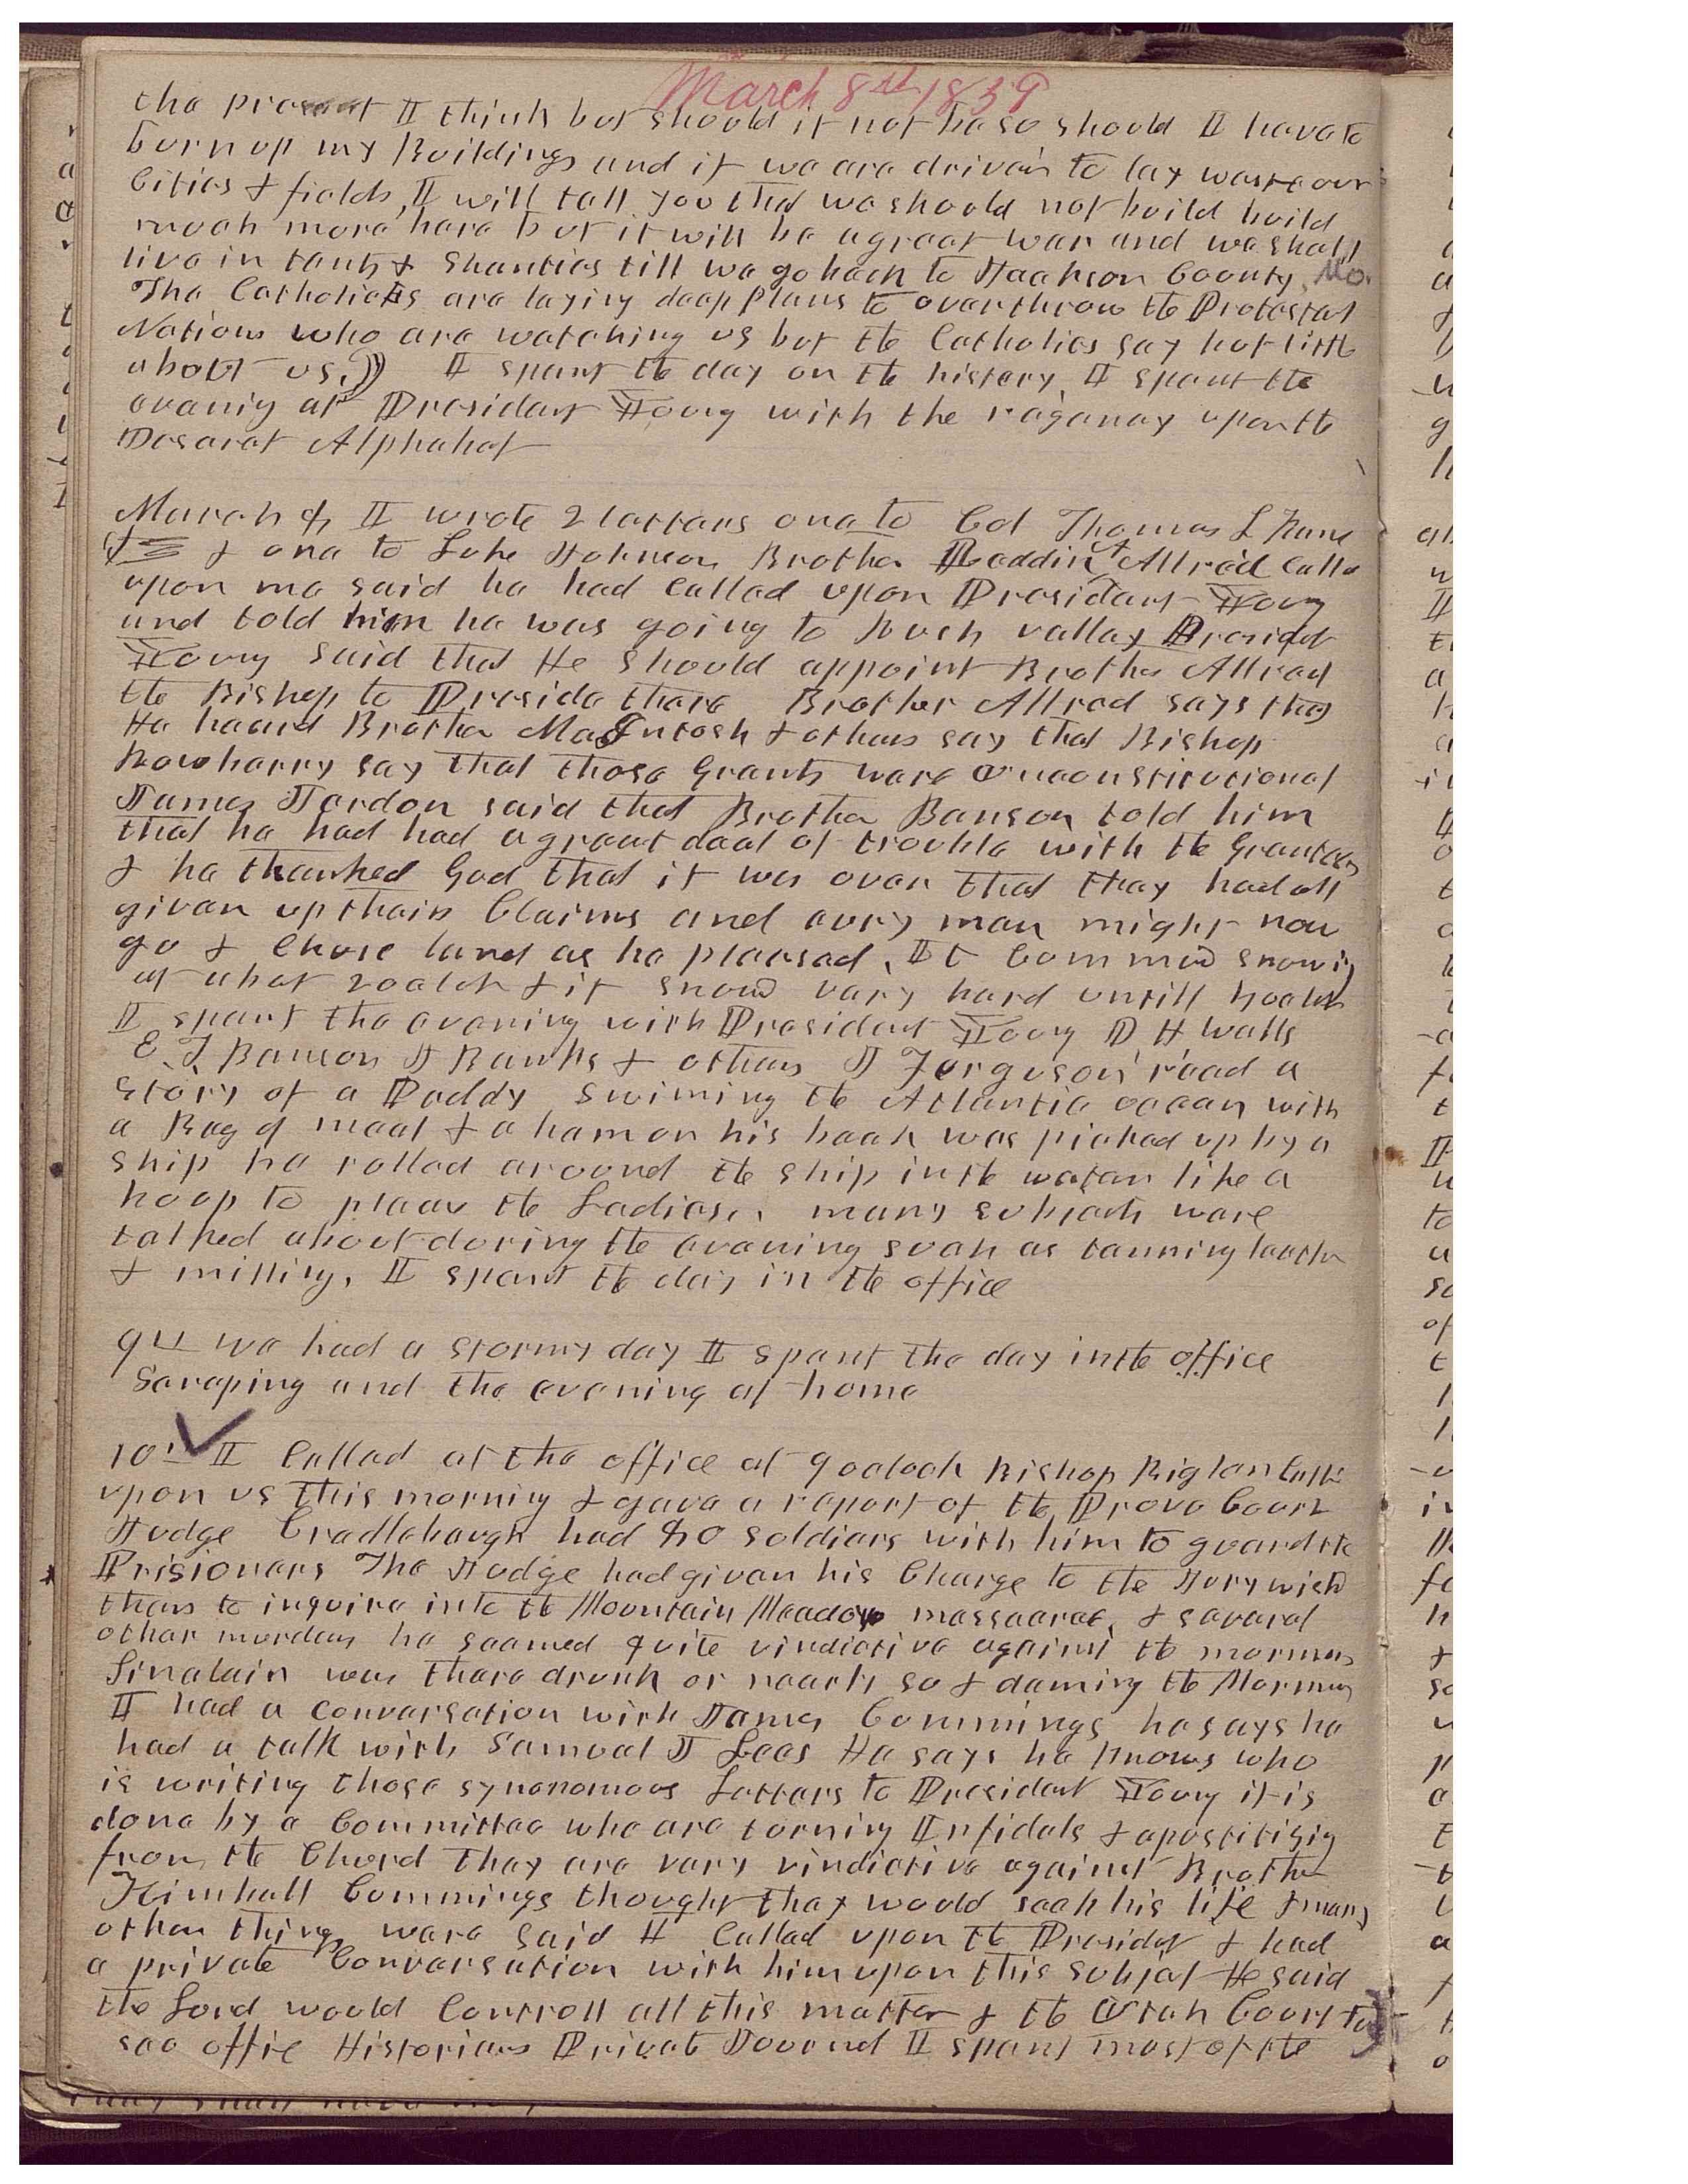 March 8th 1859
the present I think but should it not be so should I have to
burn up my Buildings and if we are driven to lay waste our
Cities & fields, I will tell you that we should not build build
much more here but it will be a great war and we shall
live in tents & Shanties till we go back to Jackson County, Mo.
The Catholicks are laying deep plans to overthrow the Protestat
Nations who are watching us but the Catholics say but little
about us.)) I spent the day on the history, I spent the
evening at President Young with the regency upon the
Deseret Alphabet
March 8th I wrote 2 letters one to Col Thomas L Kane
& one to Luke Johnson Brother Reddin Allred Calld
upon me said he had Called upon President Young
and told him he was going to Rush valley Presidet
Young said that He should appoint Brother Allred
the Bishop to Preside there Brother Allred says that
He heard Brother MacIntosh & others say that Bishop
Rowberry say that those Grants were unconstitutional
James Jordon said that Brother Benson told him
that he had had a great deal of trouble with the Grantees
& he thanked God that it was over that they had all
given up their Claims and evry man might now
go & Chose land as he pleased. It Commed snowing
at about 2 oclok & it snowd very hard untill 4 oclok
I spent the evening with President Young D H Wells
E. T. Benson J Banks & others J Ferguson read a
story of a Paddy swiming the Atlantic ocean with
a Bag of meal & a ham on his back was picked up by a
ship he rolled around the ship in the water like a
hoop to please the Ladies. many subjects were
talked about during the evening such as tanning leather
& milling, I spent the day in the office
9th we had a stormy day I spent the day in the office
Scraping and the evening at home
10th I Called at the office at 9 oclock Bishop Bigler Calld
upon us this morning & gave a report of the Provo Court
Judge Cradlebaugh had 80 soldiers with him to guard the
Prisioners The Judge had given his Charge to the Jury wishd
them to inquire into the Mountain Meadow massacree, & several
other murders he seemed quite vindictive against the mormons
Sinclair was there drunk or nearly so & daming the Mormons
I had a conversation with James Cummings he says he
had a talk with Samuel J Lees He says he knows who
is writing those synonomous Letters to President Young it is
done by a Committee who are turning Infidels & apostitizing
from the Church They are very vindictive against Brother
Kimball Cummings thought they would seek his life & many
other things were said I Called upon the Presidet & had
a private Conversation with him upon this subject He said
the Lord would Controll all this matter & the Utah Courts
see offic Historians Privat Journal I spent most of the